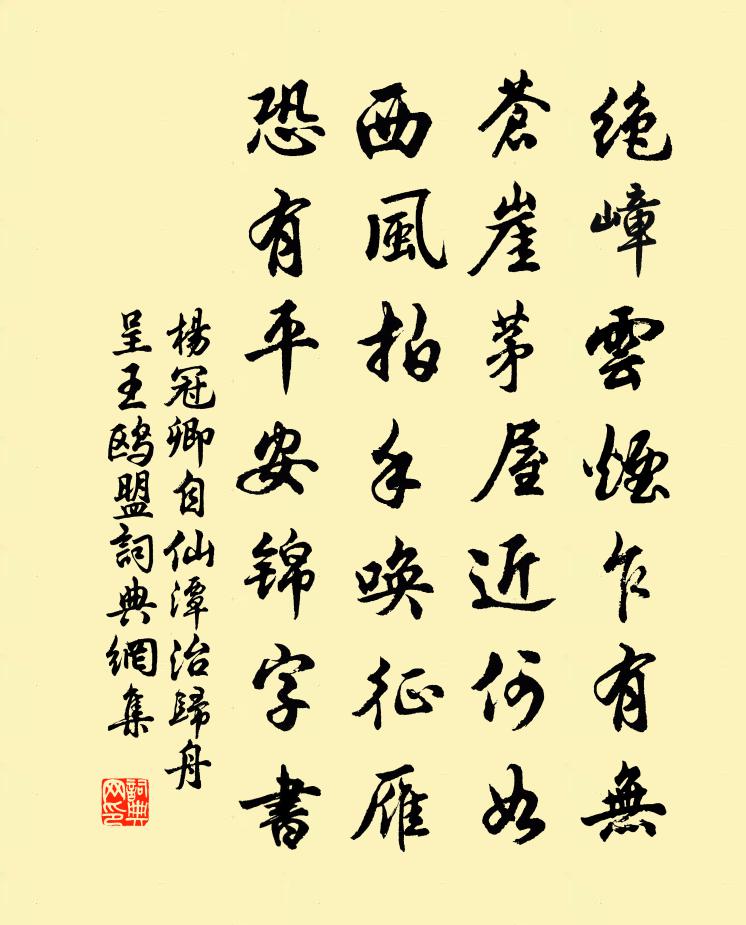 绝嶂雲煙乍有無
蒼崖茅屋近何如
西風拍手唤征雁
恐有平安锦字書
楊冠卿自仙潭治歸舟
呈王鸥盟詞典網集
詞典
网印